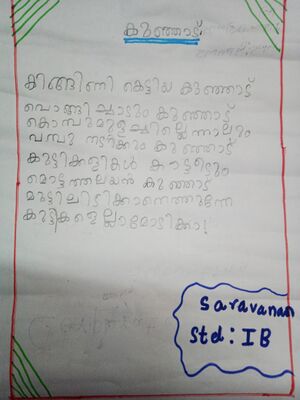 കുഞ്ഞാട്
കിങ്ങിണി കെട്ടിയ കുഞ്ഞാട്
പൊങ്ങിച്ചാടും കുഞ്ഞാട്
കൊമ്പുമുളച്ചില്ലെന്നാലും
വമ്പു നടിക്കും കുഞ്ഞാട്
കുട്ടിക്കളികൾ കാട്ടീടും
മൊട്ടത്തലയൻ കുഞ്ഞാട്
മുട്ടിലിടിക്കാനെത്തുന്നേ
കുട്ടികളെല്ലാമോടിക്കോ!
Saravanan
Std: I B